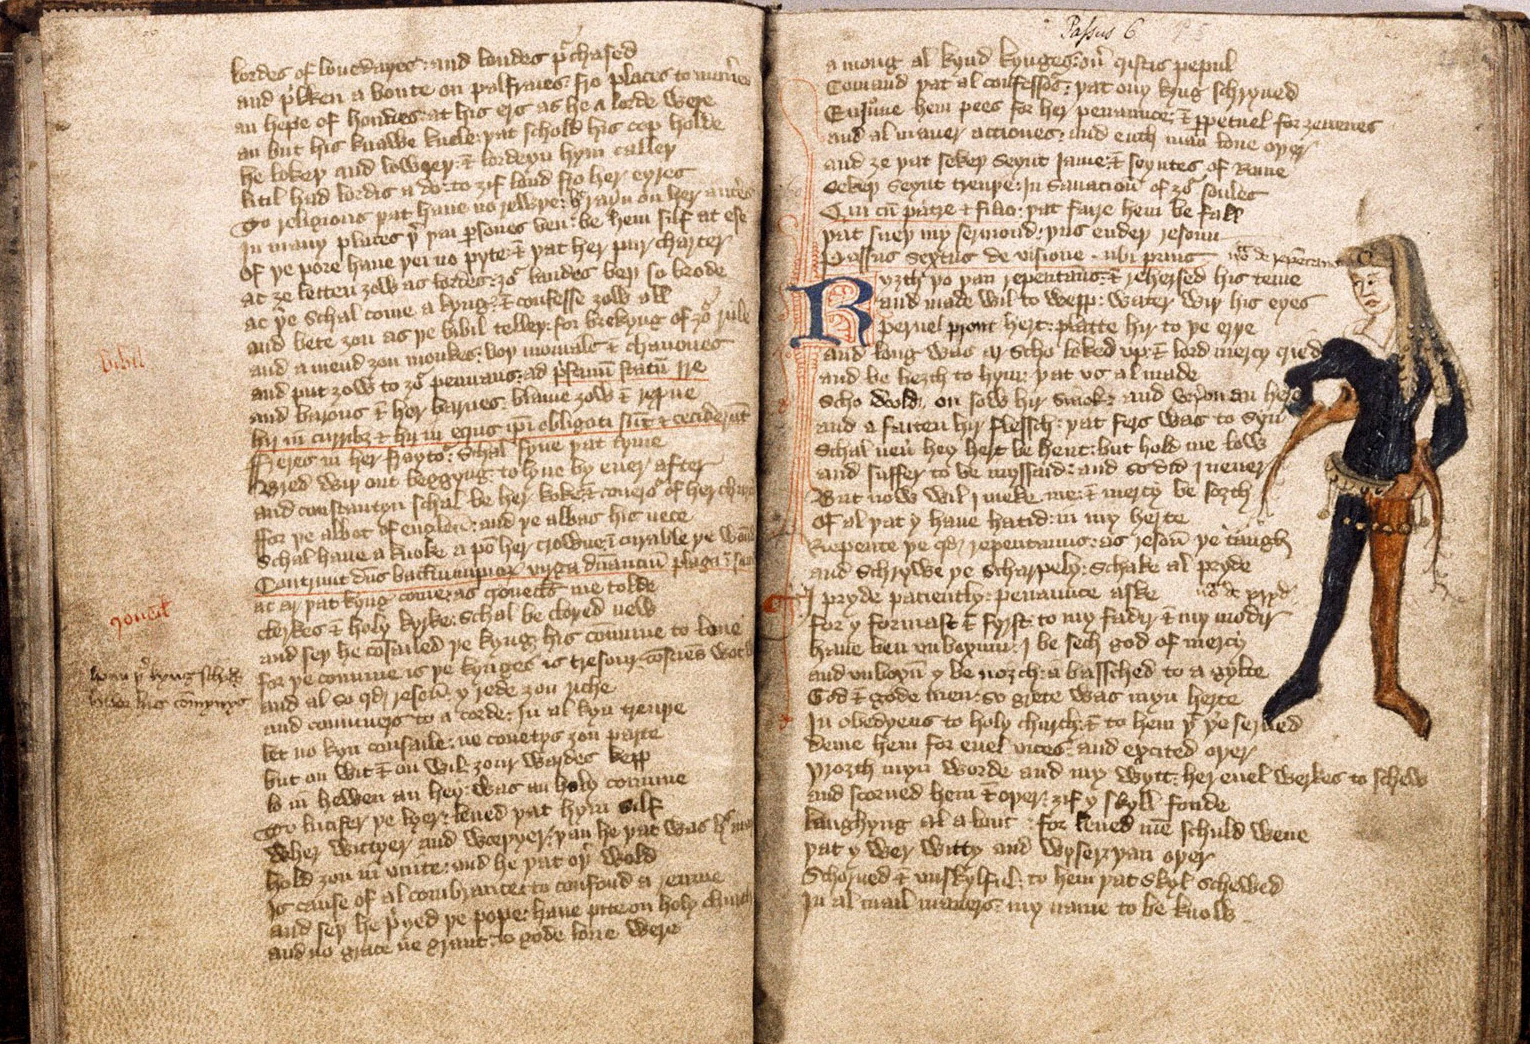 lordes of louedayes: and londes p'chased
and p'kken a boute on palfraies: fro places to man'es
an hepe of houndes: at his ers as he a lorde were
an but his knawe knele: þat schold his cop holde
he lokeþ and lowreþ: & lordeyn hym calleþ
litil had lordis a do: to ȝif lond fro her eyres
To religious þat haue no rewþe: þogh rayn on her auters
In many places þer þai p'sones ben: be hem silf at ese
Of þe pore haue þei no pyte: & þat her pur charter
ac ȝe letten ȝow as lordes: ȝo' landes beþ so brode
ac þer schal come a kyng: & confesse ȝow all
and bete ȝou as þe bibil telleþ: for brekyng of ȝo' rule
and a mend ȝou monkes: boþ monials & chanones
and put ȝow to ȝo' penaans: ad pristinu statu ire
and barons & her barnes: blame ȝow & repue
hij in curribȝ & hij in equis ip̄i obligati sūt & ceciderūt
Freres in her frayto': schal fyne þat tyme
Bred wiþ out beggyng: to lyue by euer after
and constantyn schal be her koke: & couero' of her chirch
ffor þe abbot of englond: and þe abbas his nece
Schal haue a knoke a po' her crowne: & incurable þe wound
Contriuit dn̄s baculum impior' virga dn̄anciū plaga i
ac ar þat kyng come: as croneclis me tolde
clerkes & holy kyrke: schal be cloþed new
and seþ he cōsailed þe kyng: his cōmune to loue
for þe comune is þe kynges: is tresour: cōsciens wot
and al so qd resoū: y rede ȝou riche
and comuners to a corde: In al kyn treuþe
let no kyn consaile: ne couetys ȝou parte
but on wit & on wil: ȝour wardes kepp
lo in heuen an hey: was an holy comune
To lucifer þe lyer: leued þat hym silf
wher wittyer and worþyer: þan he þat was his maister
hold ȝou in vnite: and he þat oþ' wold
Is cause of al combrance: to confond a reume
and seþ he p'yed þe pope: haue pite on holy church
and no grace ne graunt: to gode loue were
bibil
Passus 6
a mong al kynd kynges: ou' cristis pepul
Comand þat al confessors: þat ony kyng schryued
Enioyne hem pees for her penaunce: & p'petuel forȝeuenes
and al maner acciones: and euch man loue oþer
and ȝe þat sekeþ seynt Jame: & seyntes of Rome
Sekeþ seynt treuþe: in sauacioū of ȝo' soules
Qui cū patre & filio: þat faire hem be fall
þat sueþ my sermond: þus endeþ resonn
Passus sextus de visione. vbi prius
Ryȝth þo þan repentans: & rehersed his teme
and made wil to wepp: water wiþ his eyes
Pernel prout hert: platte hir to þe erþe
and long was ar scho loked vp: & lord mercy cried
and be heȝth to hym: þat vs al made
Scho wold on sow hir smok: and set þ' on an here
and a faiten hir flessch: þat fers was to syn
Schal neu' hey hert be hent: but hold me low
and suffer to be myssaid: and so did I neuer
But now wil I meke me: & mercy be sech
Of al þat y haue hatid: in my herte
Repente þe qd repentanus: as resoū þe taugh
and schryue þe scharpely: schake al pryde
I pryde paciently: penaunce aske
For y formast & fyrst: to my fadir & my modir
haue ben vnboxum: I be sech god of mercy
and vnboxū y be noȝth: a basshed to a gylte
God & gode men: so grete was myn herte
In obedyens to holy church: & to hem þ' þe serued
deme hem for euel vices: and excited oþer
þroȝth myn worde and my wytt: her euel werkes to schew
and scorned hem & oþer: ȝif y skyll fonde
laughyng al a lout: for lened men schuld wene
þat y wer witty and wyser: þan oþer
Scorned & vnskylful: to hem þat skyl schewed
In al mail maners: my name to be know